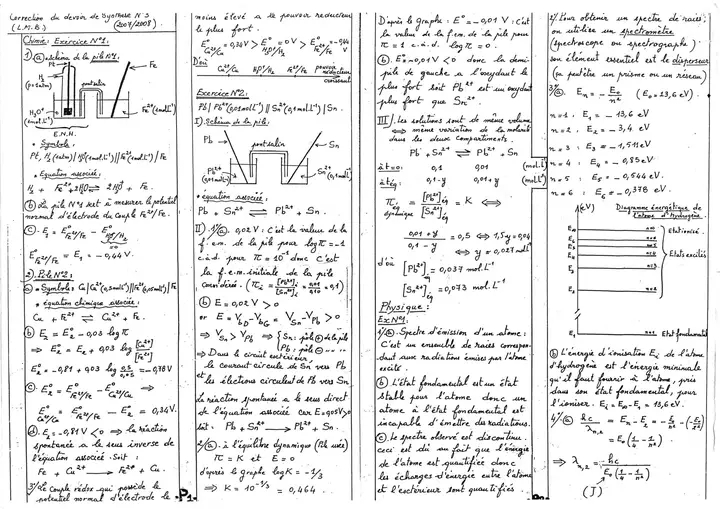 Correction du devoir de Synthèse N°3
(L.M.B.) (2007/2008).
Chimie: Exercice N°1:
1)(a) * schéma de la pile N°1.
Pt
H2
(p=1atm)
pont salin
Fe
H3O+
(1mol.L-1)
Fe2+ (1mol.L-1)
E.N.H.
* Symbole:
Pt, H2(1atm) | H3O+(1mol.L-1) || Fe2+(1mol.L-1) | Fe
* Equation associée:
H2 + Fe2+ + 2H2O ⇌ 2H3O+ + Fe.
(b) La pile N°1 sert à mesurer le potentiel
normal d'électrode du couple Fe2+/Fe.
(c). E°1 = E°Fe2+/Fe - E°H3O+/H2
=0
E°Fe2+/Fe = E1 = -0,44V
2) Pile N°2:
(a) * Symbole: Ca | Ca2+(0,5mol.L-1) || Fe2+(0,05mol.L-1) | Fe
* équation chimique associée:
Ca + Fe2+ ⇌ Ca2+ + Fe.
(b) E2 = E°2 - 0,03 log π
⇒ E°2 = E2 + 0,03 log [Ca2+]/[Fe2+]
E°2 = -0,81 + 0,03 log 0,5/0,05 = -0,78V
(c). E°2 = E°Fe2+/Fe - E°Ca2+/Ca ⇒
E°Ca2+/Ca = E°Fe2+/Fe - E°2 = 0,34V.
(d). E2 = -0,81V < 0 ⇒ la réaction
spontanée a le sens inverse de
l'équation associée. Soit:
Fe + Ca2+ → Fe2+ + Ca.
3) Le couple rédox qui possède le
potentiel normal d'électrode le
moins élevé a le pouvoir réducteur
le plus fort.
E°Ca2+/Ca = 0,34V > E°H3O+/H2 = 0V > E°Fe2+/Fe = -0,44V
D'où
Ca2+/Ca H3O+/H2 Fe2+/Fe pouvoir réducteur croissant
Exercice N°2:
Pb | Pb2+(0,01mol.L-1) || Sn2+(0,1mol.L-1) | Sn.
I) Schéma de la pile:
Pb
pont salin
Sn
Pb2+
(0,01mol.L-1)
Sn2+(0,1mol.L-1)
* équation associée:
Pb + Sn2+ ⇌ Pb2+ + Sn.
II) 1/(a). 0,02V: C'est la valeur de la
f.e.m. de la pile pour log π = -1
c.à.d. pour π = 10-1 donc C'est
la f.e.m. initiale de la pile
considérée. (πi = [Pb2+]i/[Sn2+]i = 0,01/0,10 = 0,1)
(b) E = 0,02V > 0
or E = VbD - VbG = VSn - VPb > 0
⇒ VSn > VPb ⇒ {Sn: pôle ⊕ de la pile
Pb: pôle ⊖ --- --
⇒ Dans le circuit extérieur:
le courant circule de Sn vers Pb
et
les électrons circulent de Pb vers Sn
La réaction spontanée a le sens direct
de l'équation associée car E=0,02V>0
soit: Pb + Sn2+ → Pb2+ + Sn.
2/(a). à l'équilibre dynamique (Pile usée)
π = K et E = 0
d'après le graphe log K = -1/3
⇒ K = 10-1/3 = 0,464.
-P1-
D'après le graphe: E° = -0,01V: C'est
la valeur de la f.e.m. de la pile pour
π = 1 c.à.d. log π = 0.
(b). E° = -0,01V < 0 donc la demi-
pile de gauche a l'oxydant le
plus fort soit Pb2+ est un oxydant
plus fort que Sn2+.
III/ Les solutions sont de même volume
⇔ même variation de la molarité
dans les deux compartiments.
Pb + Sn2+ ⇌ Pb2+ + Sn
à t=0: 0,1 0,01 (mol.L-1)
à téq: 0,1-y 0,01+y (mol.L-1)
πéq dynamique = [Pb2+]éq/[Sn2+]éq = K ⇔
0,01+y/0,1-y = 0,5 ⇔ 1,5y = 0,04
⇔ y = 0,027 mol.L-1
d'où
[Pb2+]éq = 0,037 mol.L-1
[Sn2+]éq = 0,073 mol.L-1
Physique:
Ex N°1:
1/(a). Spectre d'émission d'un atome:
C'est un ensemble de raies correspon-
dant aux radiations émises par l'atome
excité.
(b). L'état fondamental est un état
stable pour l'atome donc un
atome à l'état fondamental est
incapable d'émettre des radiations.
(c). Le spectre observé est discontinu:
ceci est dû au fait que l'énergie
de l'atome est quantifiée donc
les échanges d'énergie entre l'atome
et l'extérieur sont quantifiés.
2/ Pour obtenir un spectre de raies;
on utilise un spectromètre
(spectroscope ou spectrographe).
son élément essentiel est le disperseur
(ça peut être un prisme ou un réseau)
3/(a). En = -E0/n2 (E0=13,6 eV)
n=1: E1 = -13,6 eV
n=2: E2 = -3,4 eV
n=3: E3 = -1,511 eV
n=4: E4 = -0,85 eV
n=5: E5 = -0,544 eV
n=6: E6 = -0,378 eV.
(eV) Diagramme énergétique de
l'atome d'hydrogène.
E∞ n=∞ Etat ionisé.
E6
E5
E4
E3
Etats excités
E2 n=2
E1 Etat fondamental
(b) L'énergie d'ionisation Ei de l'atome
d'hydrogène est l'énergie minimale
qu'il faut fournir à l'atome, pris
dans son état fondamental, pour
l'ioniser. Ei = E∞ - E1 = 13,6 eV.
4/(a) hc/λn,2 = En - E2 = -E0/n2 - (-E0/4)
= E0(1/4 - 1/n2)
⇒ λn,2 = hc/E0(1/4 - 1/n2)
(J)